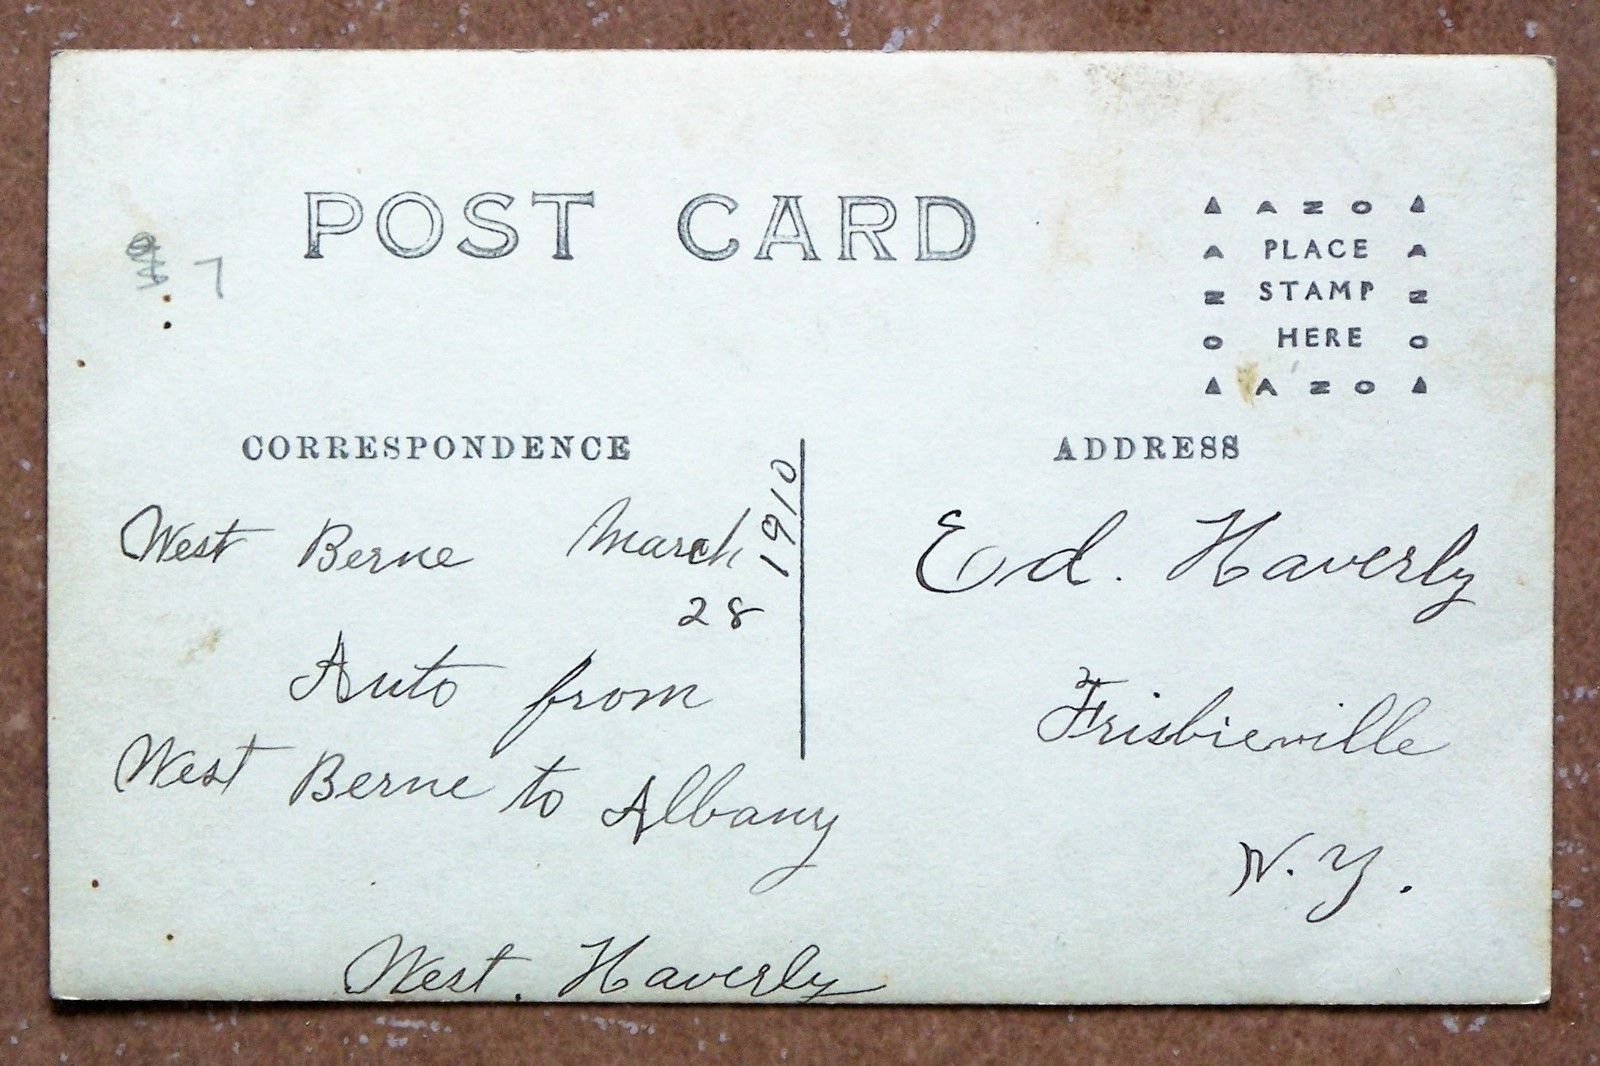 POST CARD
▲ AZO ▲
A PLACE A
Z STAMP Z
O HERE O
▲ AZO ▲
7
CORRESPONDENCE
West Berne March
28
1910
Auto from
West Berne to Albany
West. Haverly
ADDRESS
Ed. Haverly
Frisbieville
N.Y.